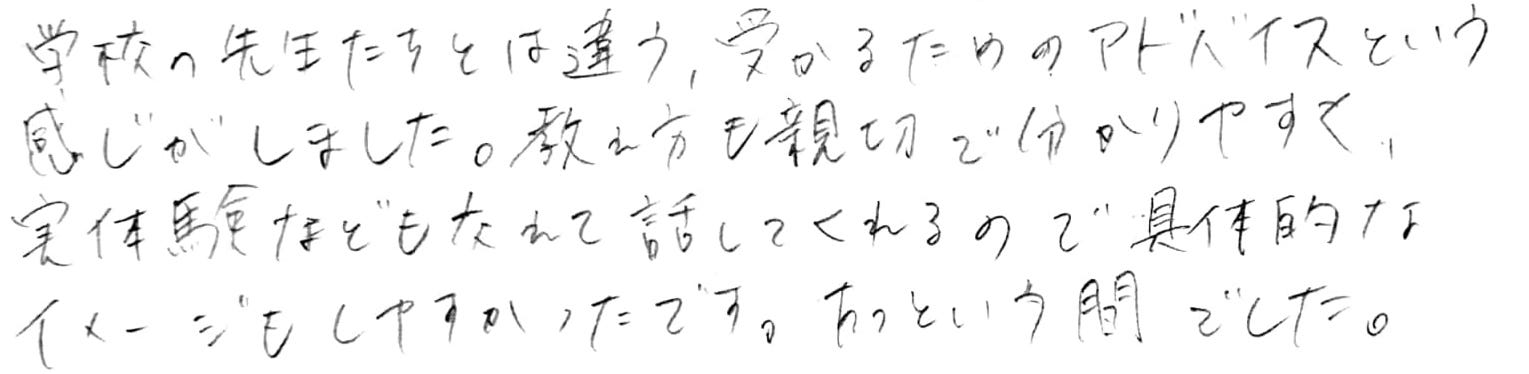 学校の先生たちとは違う、受かるためのアドバイスという
感じがしました。教え方も親切で分かりやすく、
実体験なども交えて話してくれるので具体的な
イメージもしやすかったです。あっという間でした。